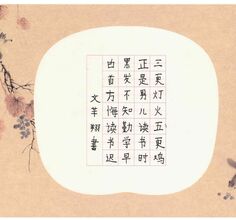 三更灯火五更鸡
正是男儿读书时
黑发不知勤学早
白首方悔读书迟
文羊翔書